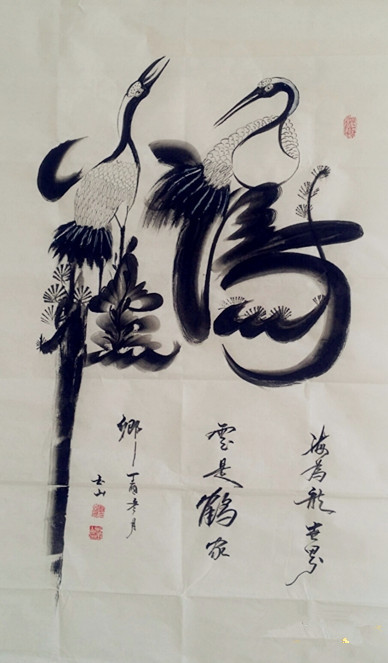 鶴
海為龙世界
雲是鶴家
鄉 丁酉冬月
玉山